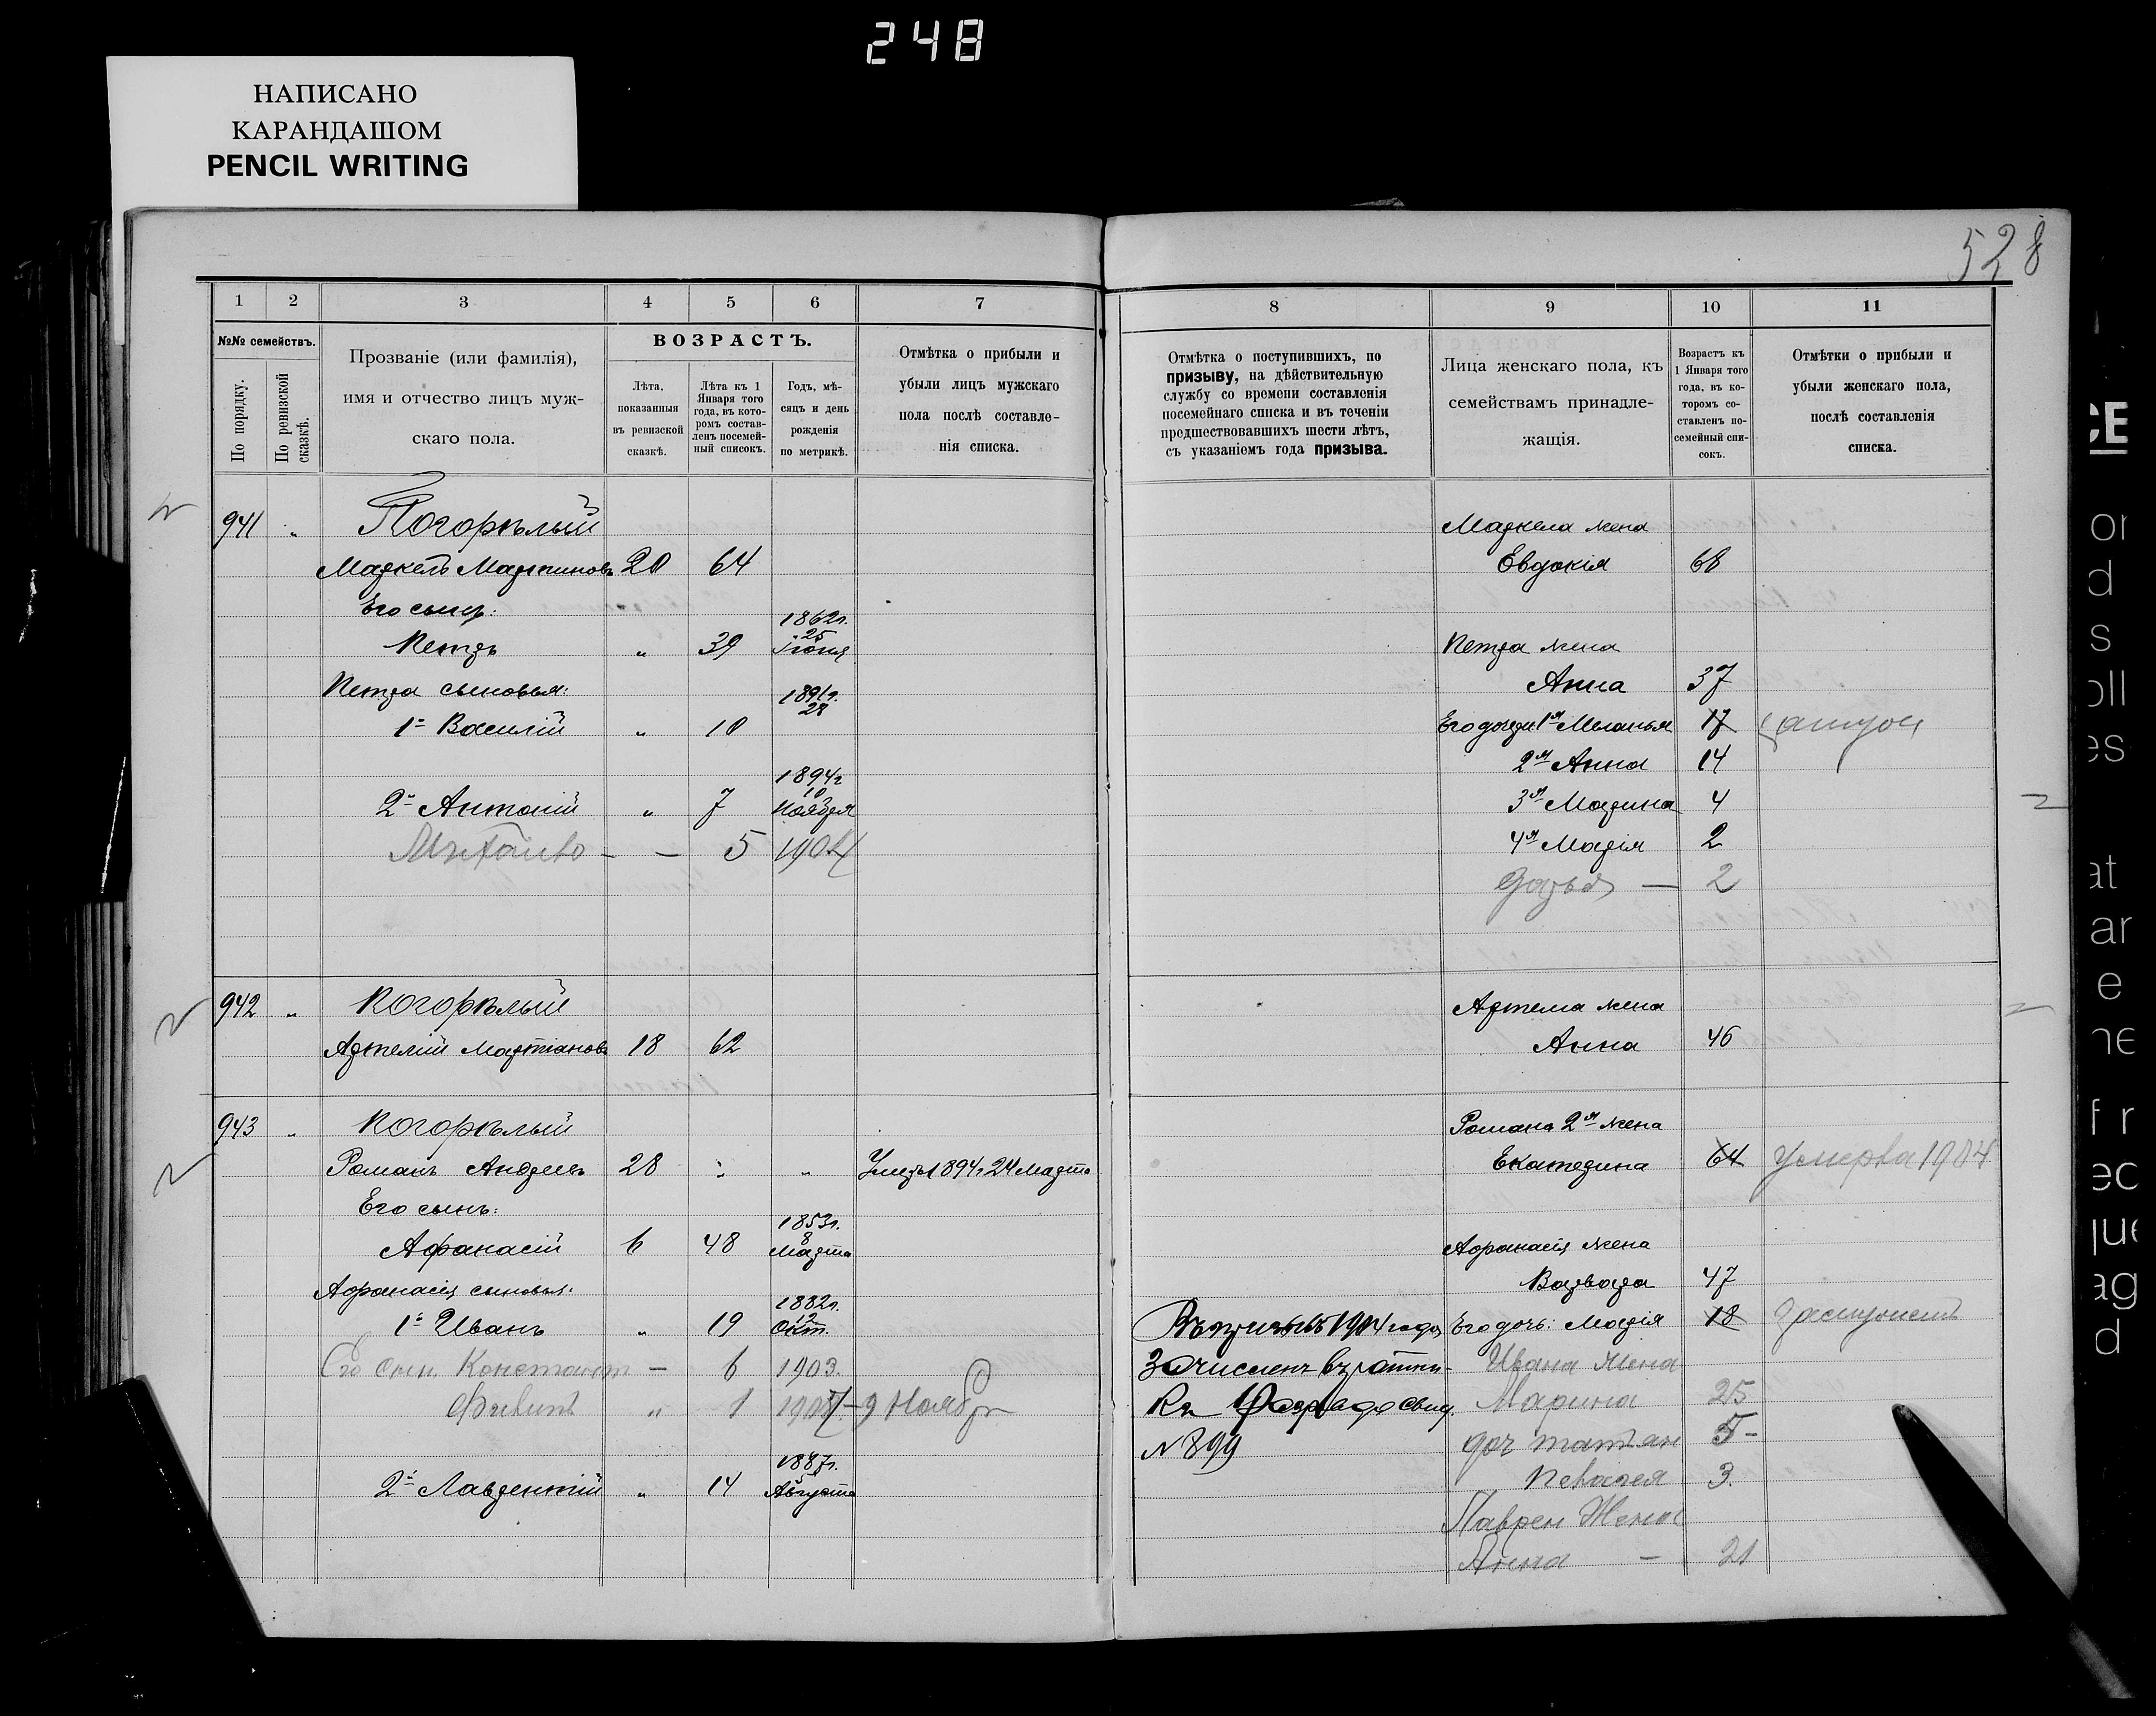 248
НАПИСАНО
КАРАНДАШОМ
PENCIL WRITING
528
1 2 3 4 5 6 7
№№ семействъ.
По порядку.
По ревизской сказкѣ.
Прозваніе (или фамилія),
имя и отчество лицъ муж-
скаго пола.
ВОЗРАСТЪ.
Лѣта,
показанныя
въ ревизской
сказкѣ.
Лѣта къ 1
Января того
года, въ кото-
ромъ состав-
ленъ посемей-
ный списокъ.
Годъ, мѣ-
сяцъ и день
рожденія
по метрикѣ.
Отмѣтка о прибыли и
убыли лицъ мужскаго
пола послѣ составле-
нія списка.
941 " Погорѣлый
Маркелъ Мартиновъ 20 64
Его сынъ:
1862г.
25
Петръ " 39 Іюня
Петра сыновья:
1891г.
28
1й Василій " 10
1894г
10
2й Антоній " 7 Ноября
— — 5 1904
942 " Погорѣлый
Артемій Мартіановъ 18 62
943 " Погорѣлый
Романъ Андреев 28 " " Умеръ 1894г 24 Марта
Его сынъ:
1853г.
8
Афанасій 6 48 Марта
Афанасія сыновья:
1882г.
12
1й Иванъ " 19 Окт.
Его сын. Константин — 6 1903.
" 1 1907 — 9 Ноября
1887г.
2й Лаврентій " 14 Августа
8 9 10 11
Отмѣтка о поступившихъ, по
призыву, на дѣйствительную
службу со времени составленія
посемейнаго списка и въ теченіи
предшествовавшихъ шести лѣтъ,
съ указаніемъ года призыва.
Лица женскаго пола, къ
семействамъ принадле-
жащія.
Возрастъ къ
1 Января того
года, въ ко-
торомъ со-
ставленъ по-
семейный спи-
сокъ.
Отмѣтки о прибыли и
убыли женскаго пола,
послѣ составленія
списка.
Маркела жена
Евдокія 68
Петра жена
Анна 37
Его дочери 1я Меланья 17 замужем
2я Анна 14
3я Марина 4
4я Марія 2
Дарья — 2
Артема жена
Анна 46
Романа 2я жена
Екатерина 64 умерла 1904
Афанасія жена
Варвара 47
Въ призывъ 1904 года Его дочь: Марія 18
Зачисленъ въ ратни- Ивана жена
ки разряда свид. Марина 25
№ 899 доч татьян 5 -
Пелагея 3.
Лаврен Жена
Анна — 21